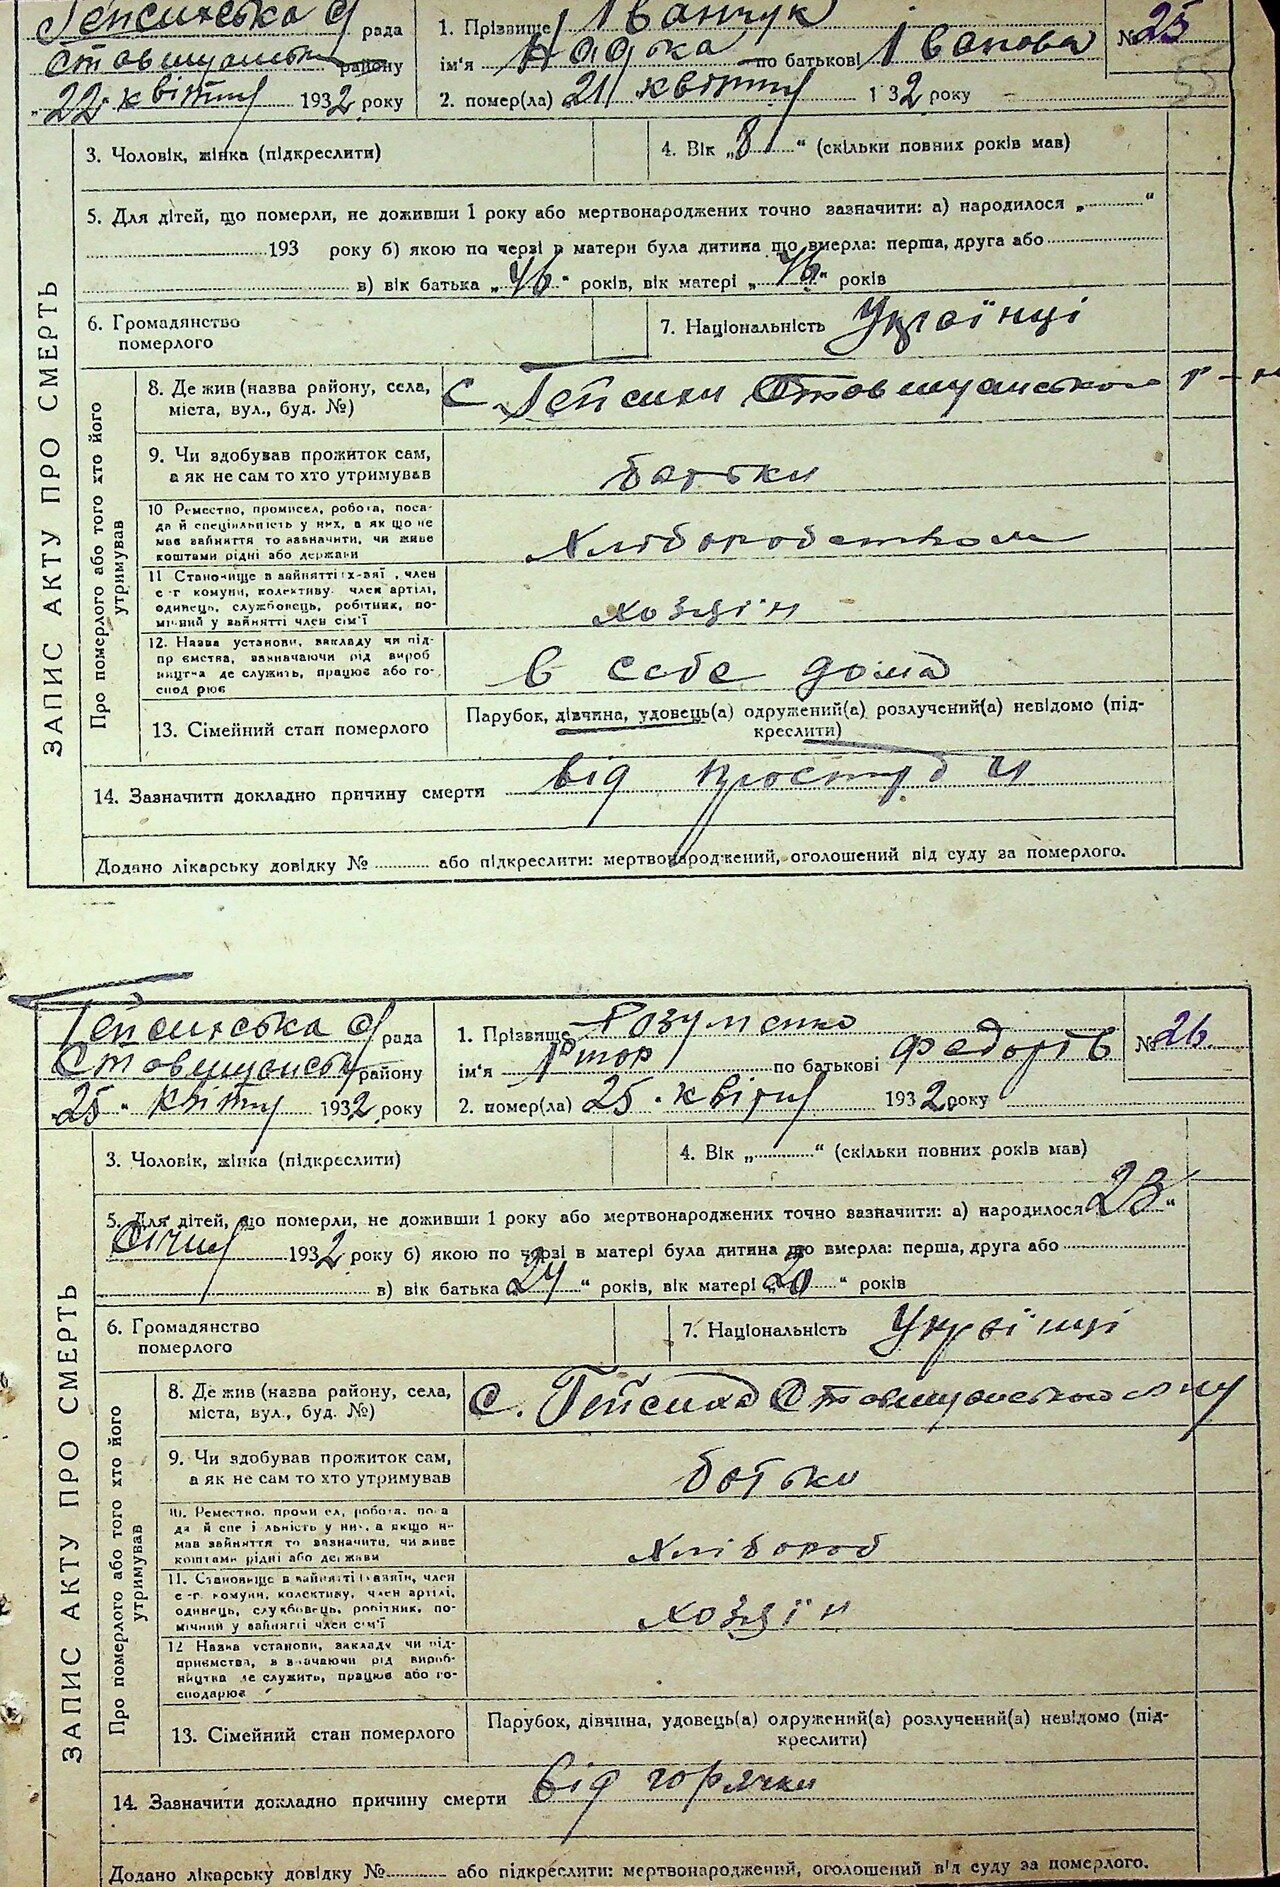 Гейсинська с/рада
Ставищанськ району
„22“ квітня 1932 року
1. Прізвище Іванчук
ім'я Надька по батькові Іванова
№ 25
2. помер(ла) 21 квітня 132 року
3. Чоловік, жінка (підкреслити)
4. Вік „8“ (скільки повних років мав)
5. Для дітей, що померли, не доживши 1 року або мертвонароджених точно зазначити: а) народилося „ “
193 року б) якою по черзі в матери була дитина що вмерла: перша, друга або
в) вік батька „46“ років, вік матері „46“ років
6. Громадянство
померлого
7. Національність Українці
ЗАПИС АКТУ ПРО СМЕРТЬ
Про померлого або того хто його
утримував
8. Де жив (назва району, села,
міста, вул., буд. №)
С. Гейсихи Ставищанського р-н
9. Чи здобував прожиток сам,
а як не сам то хто утримував
батьки
10 Ремество, промисел, робота, поса-
да й спеціяльність у них, а як що не
мав зайняття то зазначити, чи живе
коштами рідні або держави
Хліборобством
11 Становище в зайнятті член
с-г комуни, колективу член артілі,
одинець, службовець, робітник, по-
мічний у зайнятті член сім'ї
хозяїн
12. Назва установи, закладу чи під-
приємства, зазначаючи рід вироб
ництва де служить, працює або го-
спод рює
в себе дома
13. Сімейний стан померлого
Парубок, дівчина, удовець(а) одружений(а) розлучений(а) невідомо (під-
креслити)
14. Зазначити докладно причину смерти від простуди
Додано лікарську довідку № або підкреслити: мертвонароджений, оголошений від суду за померлого.
Гейсинська с/рада
Ставищанськ району
„25“ квітня 1932 року
1. Прізвище Розуменко
ім'я по батькові Федорів
№ 26
2. помер(ла) 25 квітня 1932 року
3. Чоловік, жінка (підкреслити)
4. Вік „ “ (скільки повних років мав)
5. Для дітей, що померли, не доживши 1 року або мертвонароджених точно зазначити: а) народилося 23“
Січня 1932 року б) якою по черзі в матері була дитина що вмерла: перша, друга або
в) вік батька „24“ років, вік матері „20“ років
6. Громадянство
померлого
7. Національність Українці
ЗАПИС АКТУ ПРО СМЕРТЬ
Про померлого або того хто його
утримував
8. Де жив (назва району, села,
міста, вул., буд. №)
С. Гейсиха Ставищанського
9. Чи здобував прожиток сам,
а як не сам то хто утримував
батьки
10. Ремество, проми ел, робота, по а
да й спе і льність у них, а якщо н-
мав зайняття то зазначити, чи живе
коштами рідні або держави
Хлібороб
11. Становище в зайнятті член
с-г. комуни, колективу, член артілі,
одинець, службовець, робітник, по-
мічний у зайнятті член сім'ї
хозяїн
12 Назва установи, закладу чи під-
приємства, зазначаючи рід вироб-
ництва де служить, працює або го-
сподарює
13. Сімейний стан померлого
Парубок, дівчина, удовець(а) одружений(а) розлучений(а) невідомо (під-
креслити)
14. Зазначити докладно причину смерти від горячки
Додано лікарську довідку № або підкреслити: мертвонароджений, оголошений від суду за померлого.